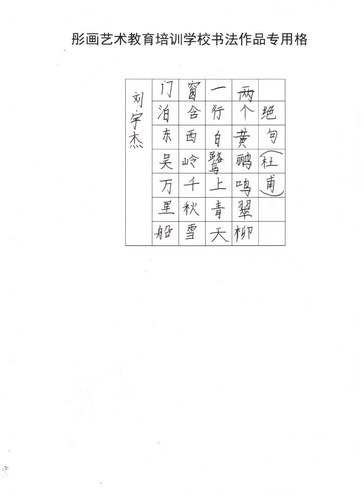 彤画艺术教育培训学校书法作品专用格
绝句(杜甫)
两个黄鹂鸣翠柳
一行白鹭上青天
窗含西岭千秋雪
门泊东吴万里船
刘宇杰